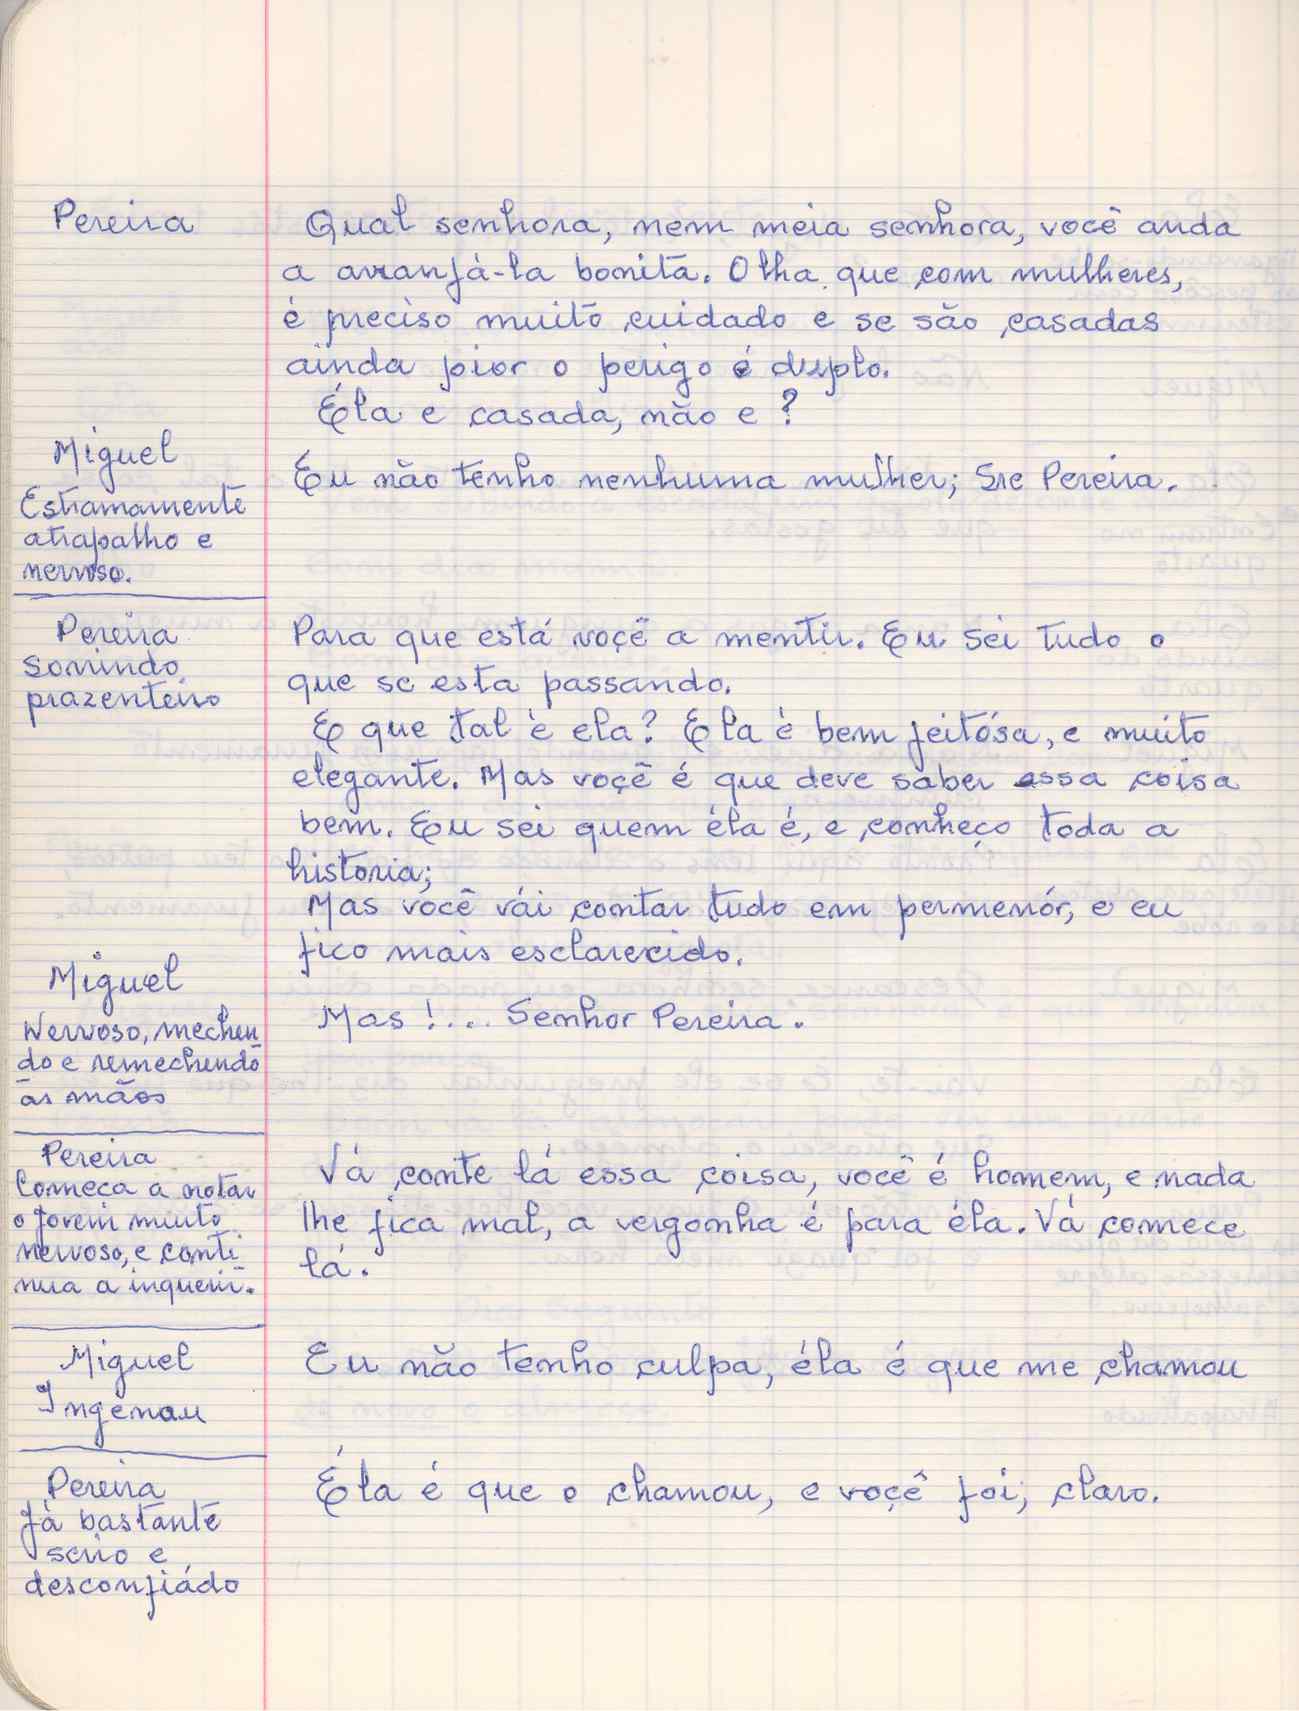 Pereira
Qual senhora, nem meia senhora, você anda
a arranjá-la bonita. Olha que com mulheres,
é preciso muito cuidado e se são casadas
ainda pior o perigo é duplo.
Éla e casada, não e ?
Miguel
Estramamente
atrapalho e
nervoso.
Eu não tenho nenhuma mulher; Sre Pereira.
Pereira
Sorrindo
prazenteiro
Para que está voçê a mentir. Eu sei tudo o
que se esta passando.
E que tal é ela? Ela é bem feitósa, e muito
elegante. Mas voçê é que deve saber essa coisa
bem. Eu sei quem éla é, e conheço toda a
historia;
Mas você vái contar tudo em permenór, e eu
fico mais esclarecido.
Miguel
Nervoso, mechen
do e remechendo
as mãos
Mas !... Senhor Pereira.
Pereira
Começa a notar
o jovem muito
nervoso, e conti
nua a inquerir.
Vá conte lá essa coisa, você é homem, e nada
lhe fica mal, a vergonha é para éla. Vá comece
lá.
Miguel
Ingenou
Eu não tenho culpa, éla é que me chamou
Pereira
Já bastante
serio e
desconfiádo
Éla é que o chamou, e voçê foi, claro.